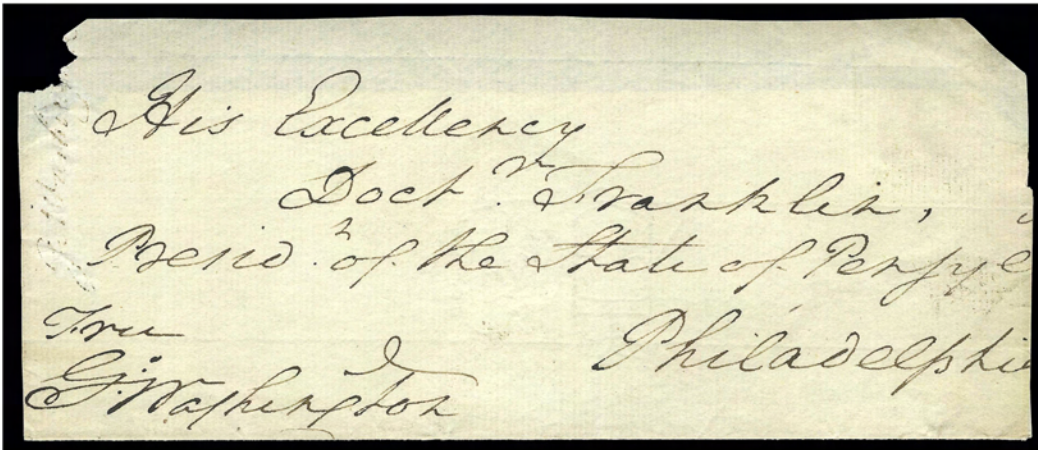 His Excellency
Doct.r Franklin,
Presid.t of the State of Pensyl
Philadelphi
Free
G:Washington